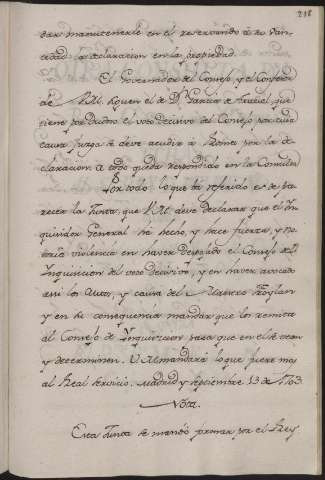 218
dar mantenerle en el
edad, a declaracion en la propiedad.
El Governador del Consejo, y el Conde
de siguen el de D. Garcia de que
tiene por el voto decisivo del Consejo, por cuia
causa juzga se deve acudir a Roma por la de
claracion. a todo queda respondido en la Consulta
Por todo lo que ha referido es de pa
recer la Junta, que V.M. deve declarar que el In
quisidor General ha hecho, y hace fuerza, y no
toria violencia en haver despojado el Consejo de
Inquisicion del voto decisivo, y en haver avocado
a si los Autos, y causa del Maestro Froylan
y en su consequencia mandar que los remita
al Consejo de Inquisicion para que en el se vean
y determinen. V.M. mandará lo que fuere mas
al Real servicio. Madrid y septiembre 13 de 1703.
Nota.
Esta Junta se mandó formar por el Rey